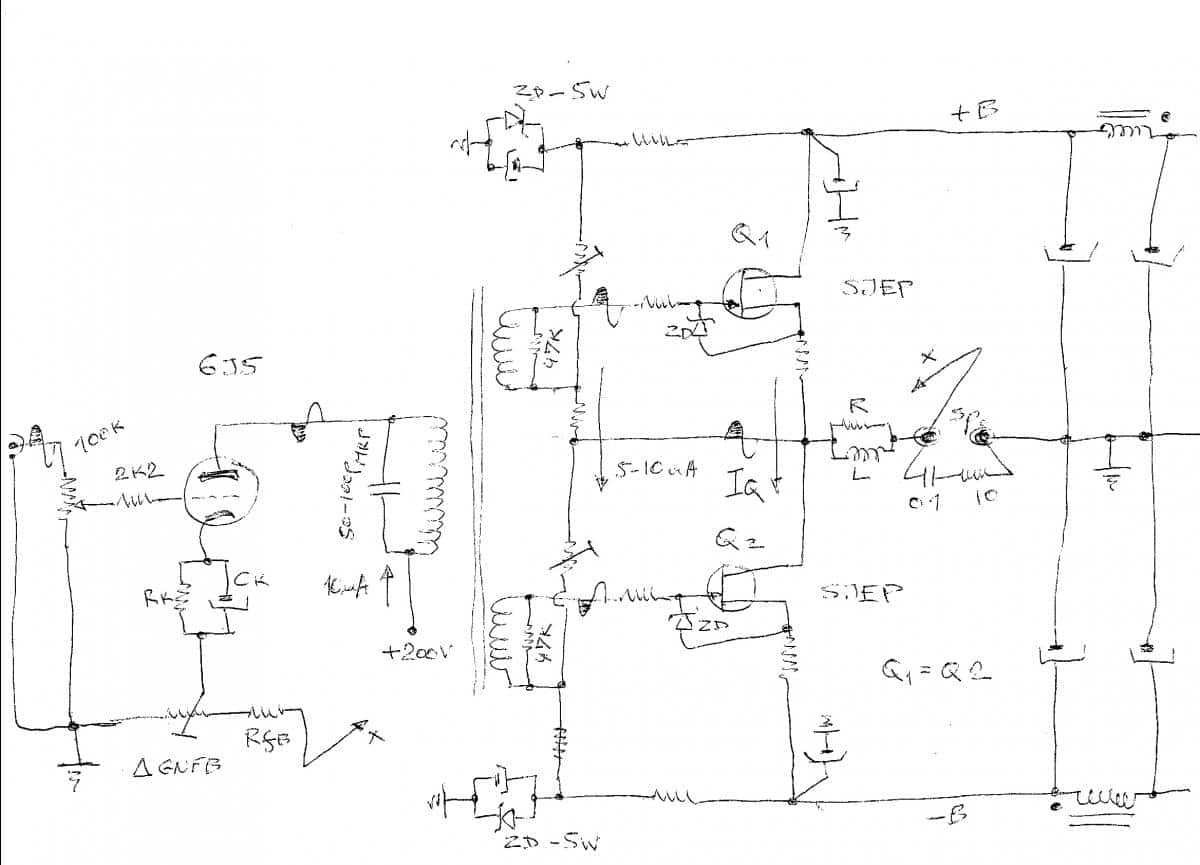 ZD-5W
+B
Q1
SJEP
ZD
47K
6J5
100K
2K2
50-100P
MKP
X
R
SP
5-10mA
IQ
L
0.1
10
Q2
CK
RK
10mA
SJEP
ZD
47K
+200V
Q1=Q2
RfB
X
Δ GNFB
-B
ZD-5W